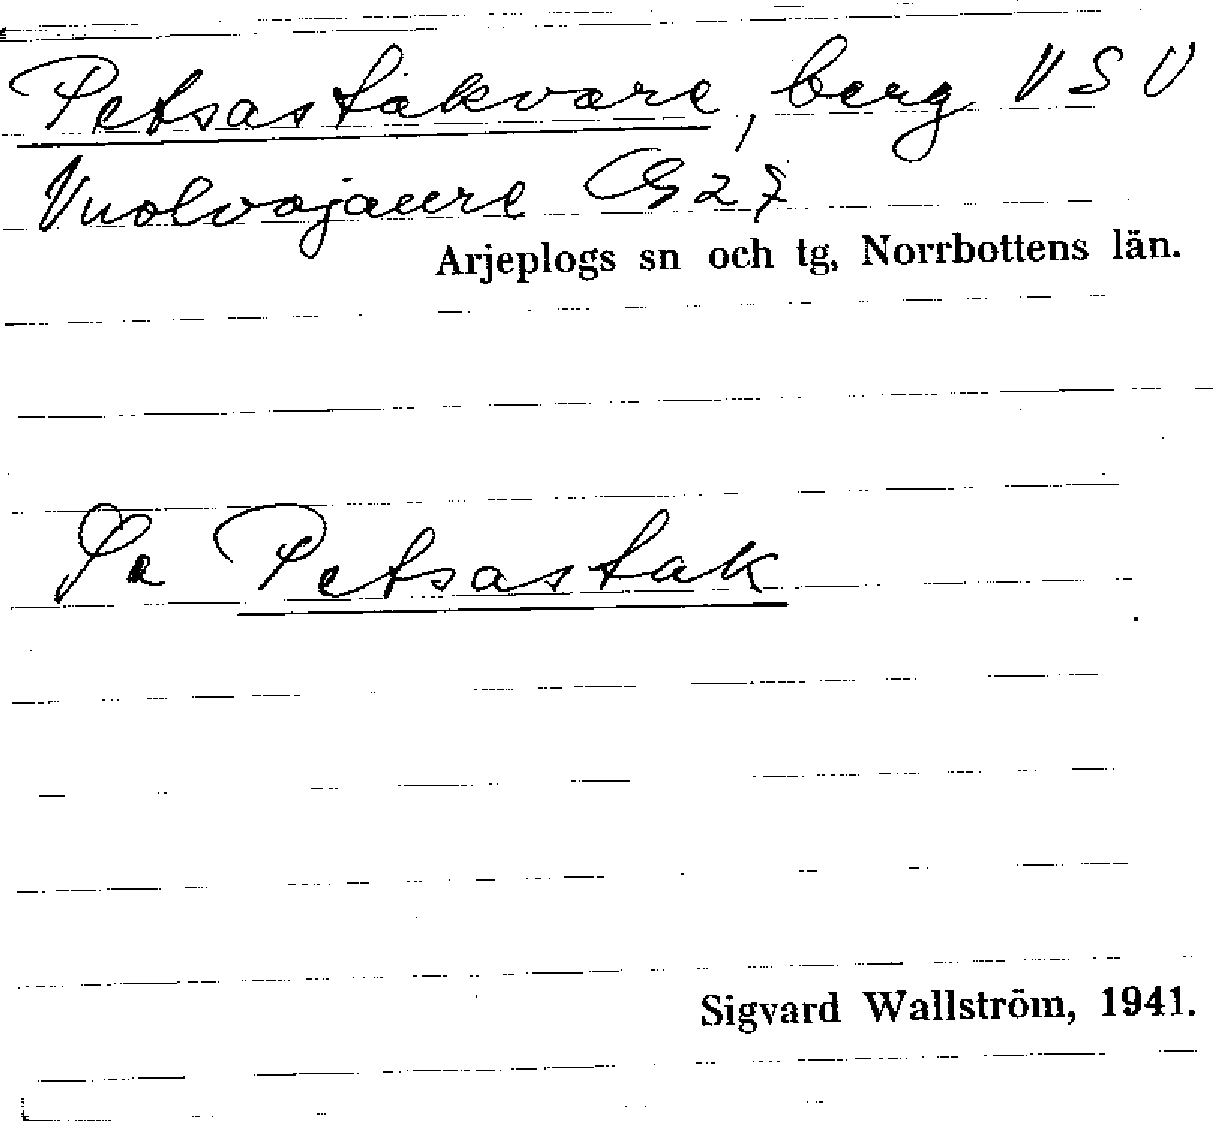 Petsastakvare, berg VSV
Vuolvojaure G27
Arjeplogs sn och tg, Norrbottens län.
Se Petsastak
Sigvard Wallström, 1941.